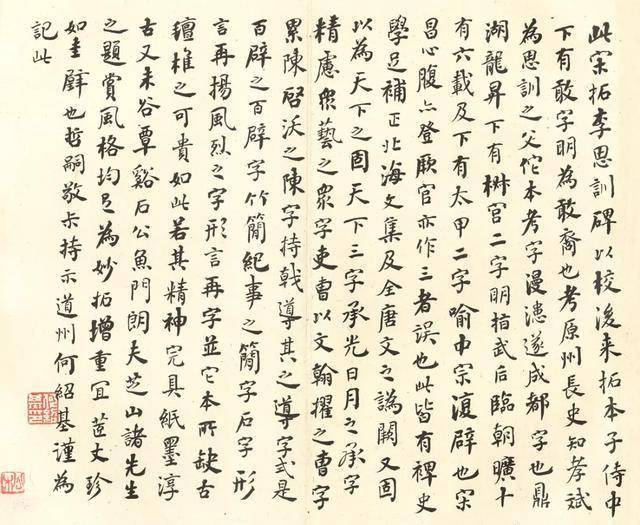 此宋拓李思訓碑以校後来拓本子侍中
下有敢字明為敢裔也考原州長史知孝斌
為思訓之父佗本考字漫漶遂成都字也鼎
湖龍昇下有樹官二字明指武后臨朝曠十
有六載及下有太甲二字喻中宗復辟也宋
昌心腹亦登厥官亦作三者誤也此皆有裨史
學足補正北海文集及全唐文之譌闕又固
以為天下之固天下三字承光日月之承字
精慮衆藝之衆字吏曹以文翰擢之曹字
累陳啓沃之陳字持戟導其之導字式是
百辟之百辟字竹簡紀事之簡字石字形
言再揚風烈之字形言再字並它本所缺古
𣫍椎之可貴如此若其精神完具紙墨淳
古又未谷覃谿石公魚門朗夫芝山諸先生
之題賞風格均足為妙拓增重宜荳丈珍
如圭璧也哲嗣敬示持示道州何紹基謹為
記此